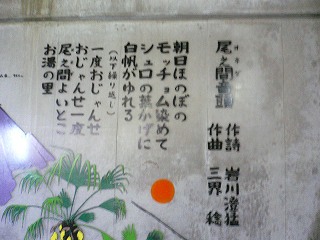 オノアイダ
尾之間音頭
作詩 岩川澄猛
作曲 三界 稔
朝日ほのぼの
モッチョム染めて
シュロの葉かげに
白帆がゆれる
(以下繰り返し)
一度おじゃんせ
おじゃんせ一度
尾之間よいとこ
お湯の里